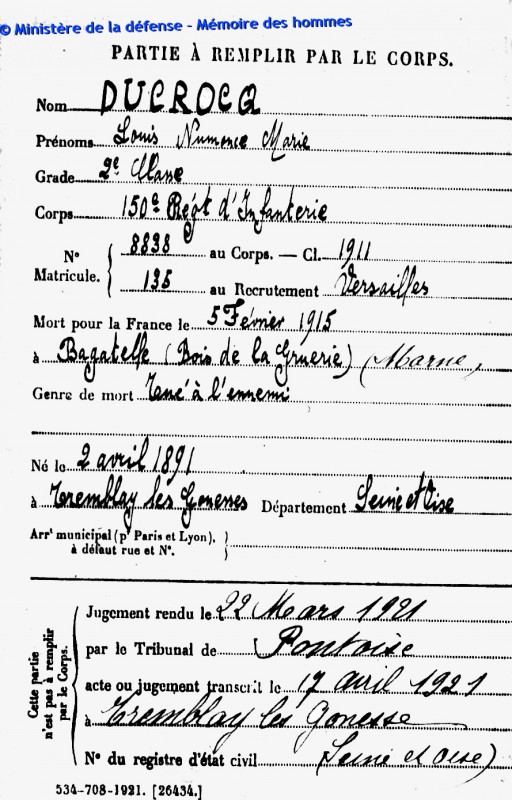 © Ministère de la défense - Mémoire des hommes
PARTIE À REMPLIR PAR LE CORPS.
Nom DUCROCQ
Prénoms Louis Numence Marie
Grade 2e Classe
Corps 150e Régt d'Infanterie
N° Matricule. { 8838 au Corps. — Cl. 1911
135 au Recrutement Versailles
Mort pour la France le 5 Février 1915
à Bagatelle (Bois de la Gruerie) (Marne)
Genre de mort Tué à l'ennemi
Né le 2 avril 1891
à Tremblay les Gonesses Département Seine et Oise
Arrt municipal (pr Paris et Lyon), à défaut rue et N°. }
Cette partie n'est pas à remplir par le Corps.
Jugement rendu le 22 Mars 1921
par le Tribunal de Pontoise
acte ou jugement transcrit le 17 avril 1921
à Tremblay les Gonesse
N° du registre d'état civil (Seine et Oise)
534-708-1921. [26434.]